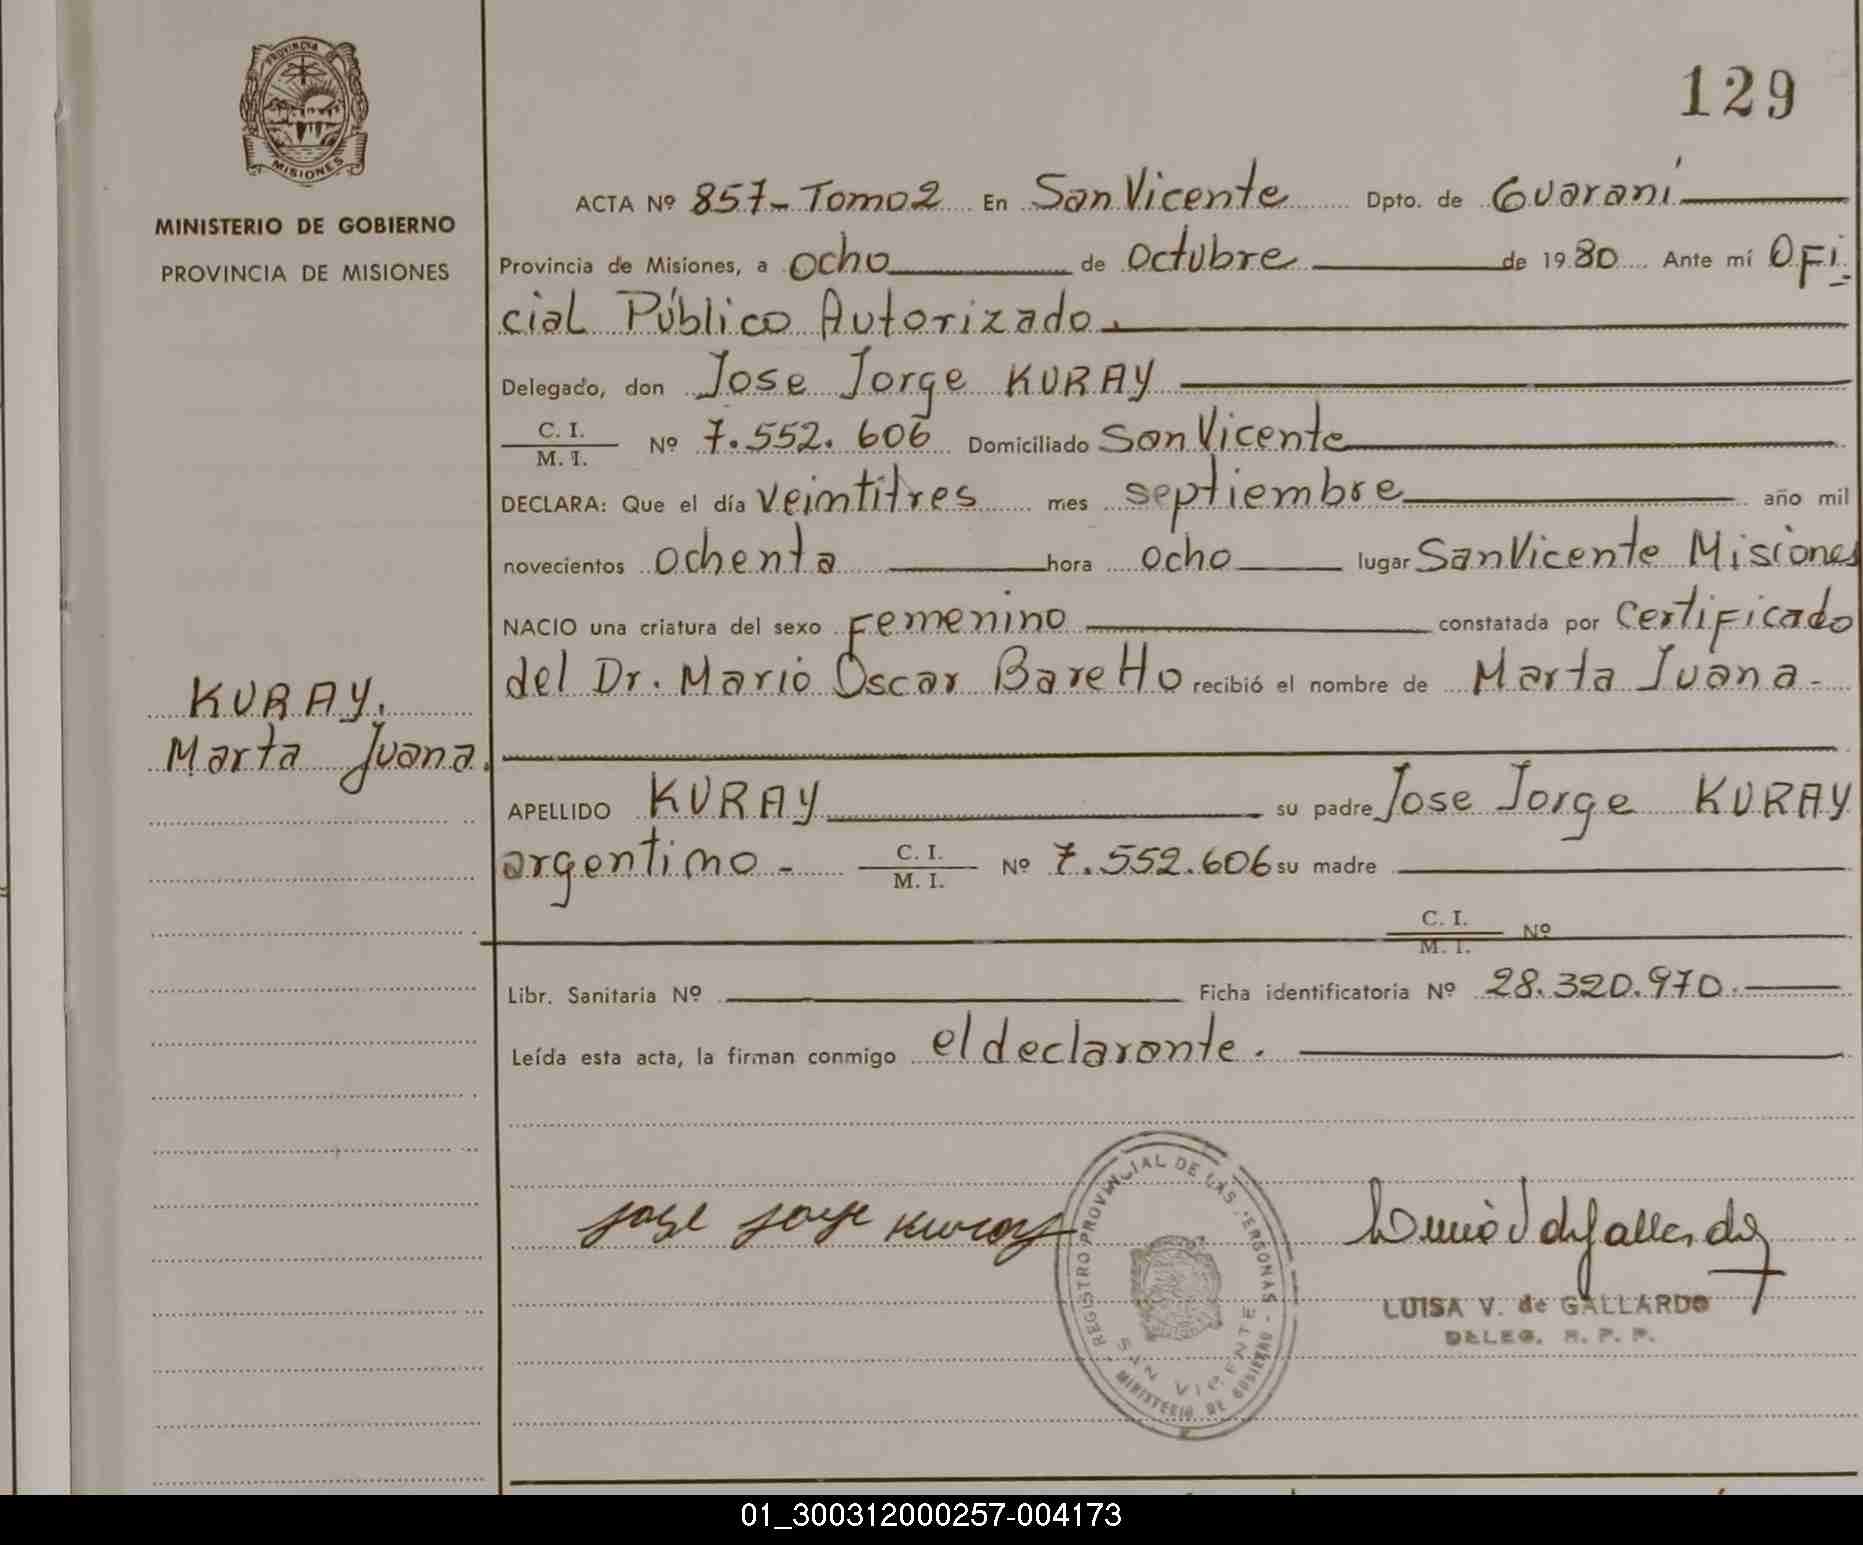 PROVINCIA DE
MISIONES
MINISTERIO DE GOBIERNO
PROVINCIA DE MISIONES
129
ACTA Nº 857- Tomo 2 En San Vicente Dpto. de Guaraní
Provincia de Misiones, a ocho de octubre de 1980 Ante mí Ofi-
cial Público Autorizado.
Delegado, don Jose Jorge KURAY
C. I.
M. I. Nº 7.552.606 Domiciliado San Vicente
DECLARA: Que el día veintitres mes septiembre año mil
novecientos ochenta hora ocho lugar San Vicente Misiones
NACIO una criatura del sexo Femenino constatada por Certificado
del Dr. Mario Oscar Baretto recibió el nombre de Marta Juana-
KURAY.
Marta Juana.
APELLIDO KURAY su padre Jose Jorge KURAY
argentino - C. I.
M. I. Nº 7.552.606 su madre
C. I.
M. I. Nº
Libr. Sanitaria Nº Ficha identificatoria Nº 28.320.970.
Leída esta acta, la firman conmigo el declarante.
Jose Jorge Kuray
REGISTRO PROVINCIAL DE LAS PERSONAS
SAN VICENTE
MINISTERIO DE GOBIERNO
LUISA V. de GALLARDO
DELEG. R. P. P.
01_300312000257-004173